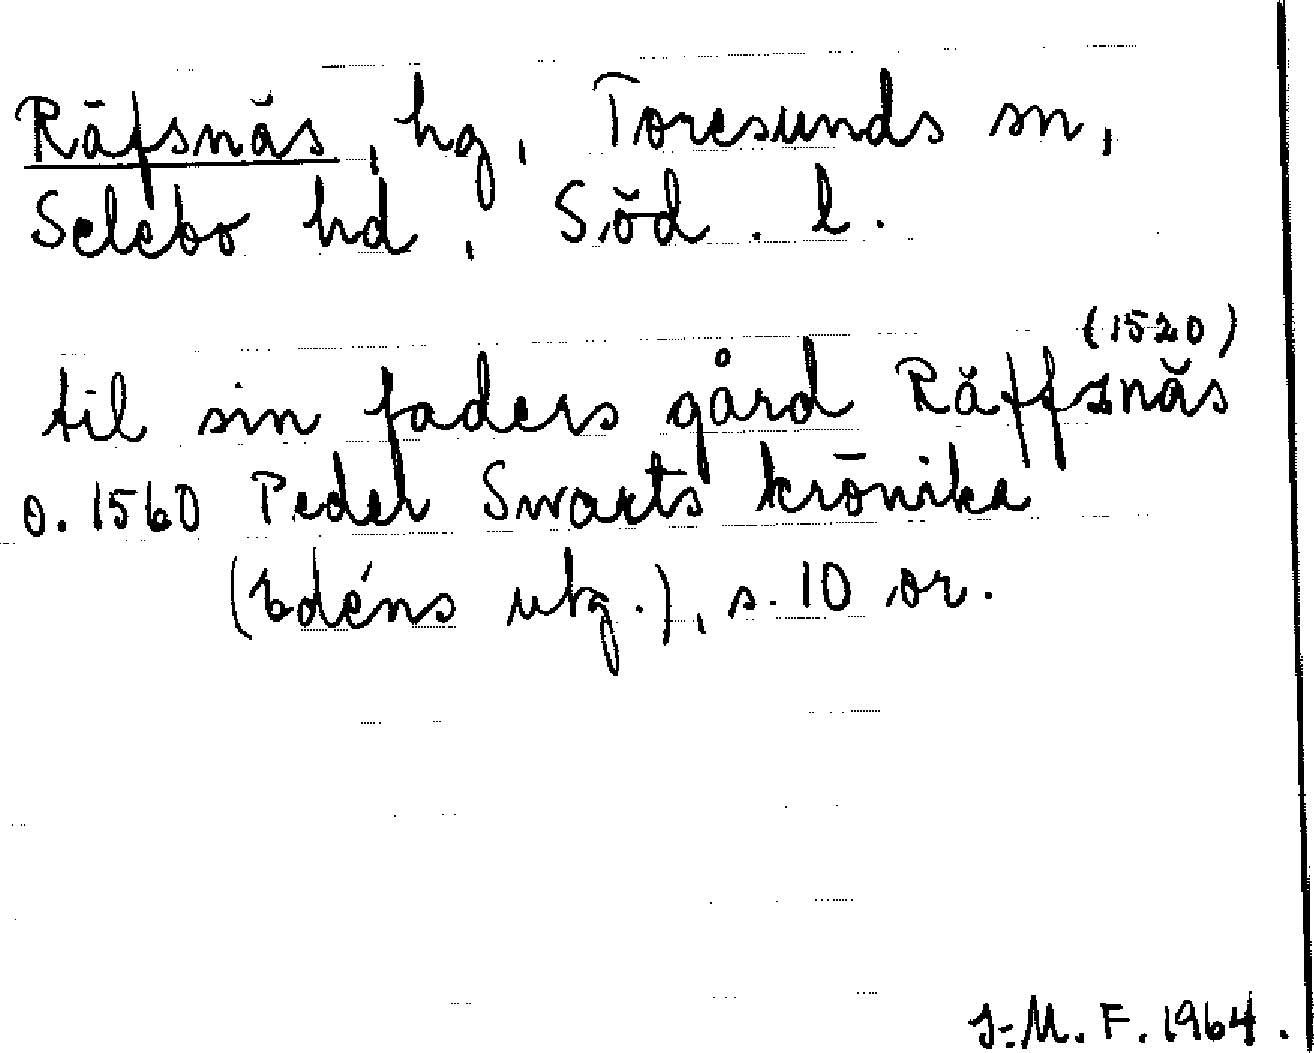 Räfsnäs, hg, Toresunds sn,
Selebo hd, Söd. l.
(1520)
til sin faders gård Räffsnäs
o. 1560 Peder Swarts krönika
(Edéns utg.), s. 10 or.
J-M. F. 1964.